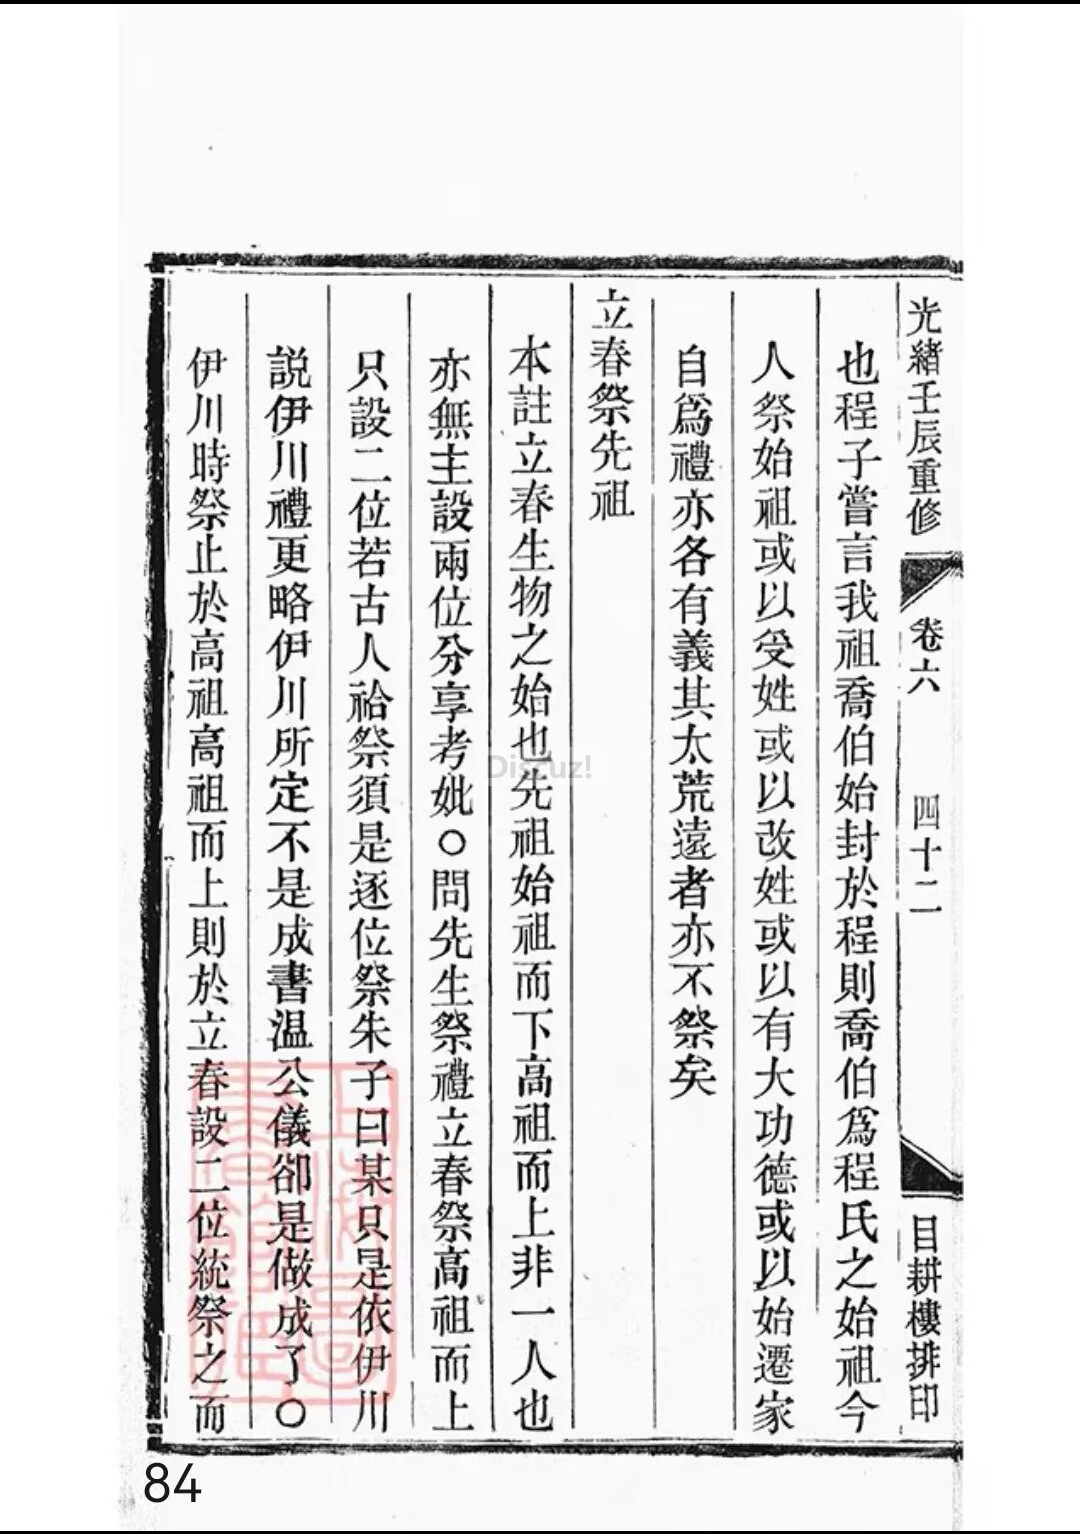 光緒壬辰重修 卷六 四十二 目耕樓排印
也程子嘗言我祖喬伯始封於程則喬伯爲程氏之始祖今
人祭始祖或以受姓或以改姓或以有大功德或以始遷家
自爲禮亦各有義其太荒遠者亦不祭矣
立春祭先祖
本註立春生物之始也先祖始祖而下高祖而上非一人也
亦無主設兩位分享考妣○問先生祭禮立春祭高祖而上
只設二位若古人祫祭須是逐位祭朱子曰某只是依伊川
説伊川禮更略伊川所定不是成書温公儀卻是做成了○
伊川時祭止於高祖高祖而上則於立春設二位統祭之而
Discuz!
84